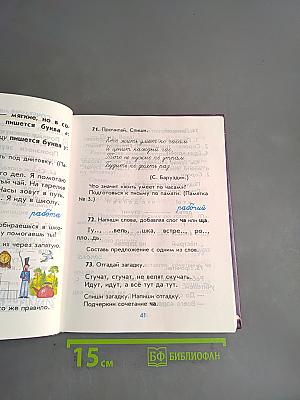 мягкие, но в со
пишется буква
пишется буква у
под диктовку. (Па
дел. Я помогаю
чай. На тарелке
Часы зовут в путь.
Я иду в школу.
работа
бираешься в шко-
у помогаешь ты?
через запятую.
то же правило.
71. Прочитай. Спиши.
Кто жить умеет по часам
И ценит каждый час,
Того не нужно по утрам
Будить по десять раз.
(С. Баруздин.)
Что значит «жить умеет по часам»?
Подготовься к письму по памяти. (Памятка
№ 3.)
рабочий
72. Напиши слова, добавляя слог ча или ща.
Ту..., ...вель, ...шка, встре..., ро...,
пло...дь.
Составь предложение с одним из слов.
73. Отгадай загадку.
Стучат, стучат, не велят скучать.
Идут, идут, а всё тут да тут.
Спиши загадку. Напиши отгадку.
Подчеркни сочетание ча.
41
15 см
БФ БИБЛИОФАН